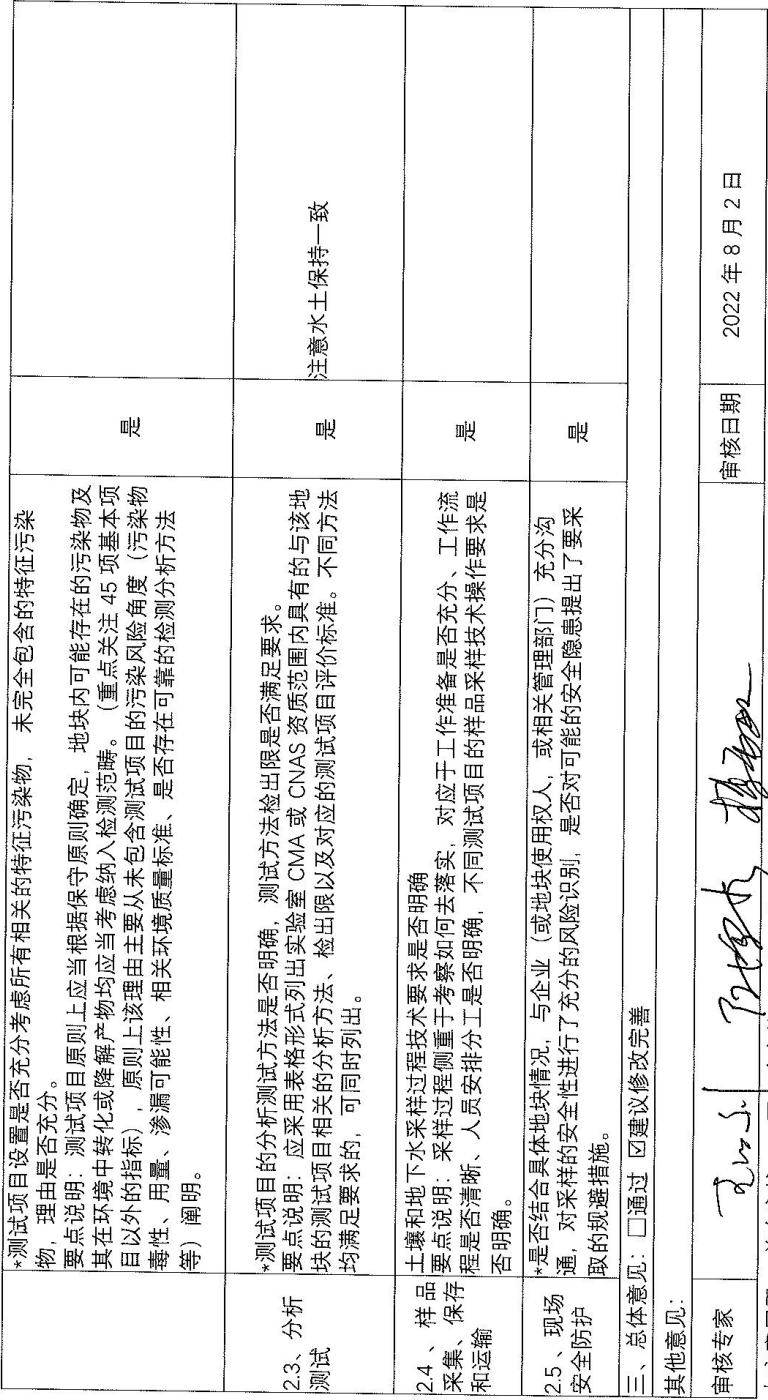 *测试项目设置是否充分考虑所有相关的特征污染物，未完全包含的特征污染
物，理由是否充分。
要点说明：测试项目原则上应当根据保守原则确定，地块内可能存在的污染物及
其在环境中转化或降解产物均应当考虑纳入检测范畴。（重点关注 45 项基本项
目以外的指标），原则上该理由主要从未包含测试项目的污染风险角度（污染物
毒性、用量、渗漏可能性、相关环境质量标准、是否存在可靠的检测分析方法
等）阐明。
是
2.3、分析
测试
*测试项目的分析测试方法是否明确，测试方法检出限是否满足要求。
要点说明：应采用表格形式列出实验室 CMA 或 CNAS 资质范围内具有的与该地
块的测试项目相关的分析方法、检出限以及对应的测试项目评价标准。不同方法
均满足要求的，可同时列出。
是
注意水土保持一致
2.4 、样品
采集、保存
和运输
土壤和地下水采样过程技术要求是否明确
要点说明：采样过程侧重于考察如何去落实，对应于工作准备是否充分、工作流
程是否清晰、人员安排分工是否明确，不同测试项目的样品采样技术操作要求是
否明确。
是
2.5、现场
安全防护
*是否结合具体地块情况，与企业（或地块使用权人，或相关管理部门）充分沟
通，对采样的安全性进行了充分的风险识别，是否对可能的安全隐患提出了要采
取的规避措施。
是
三、总体意见：□通过 ☑建议修改完善
其他意见：
审核专家
审核日期
2022 年 8 月 2 日